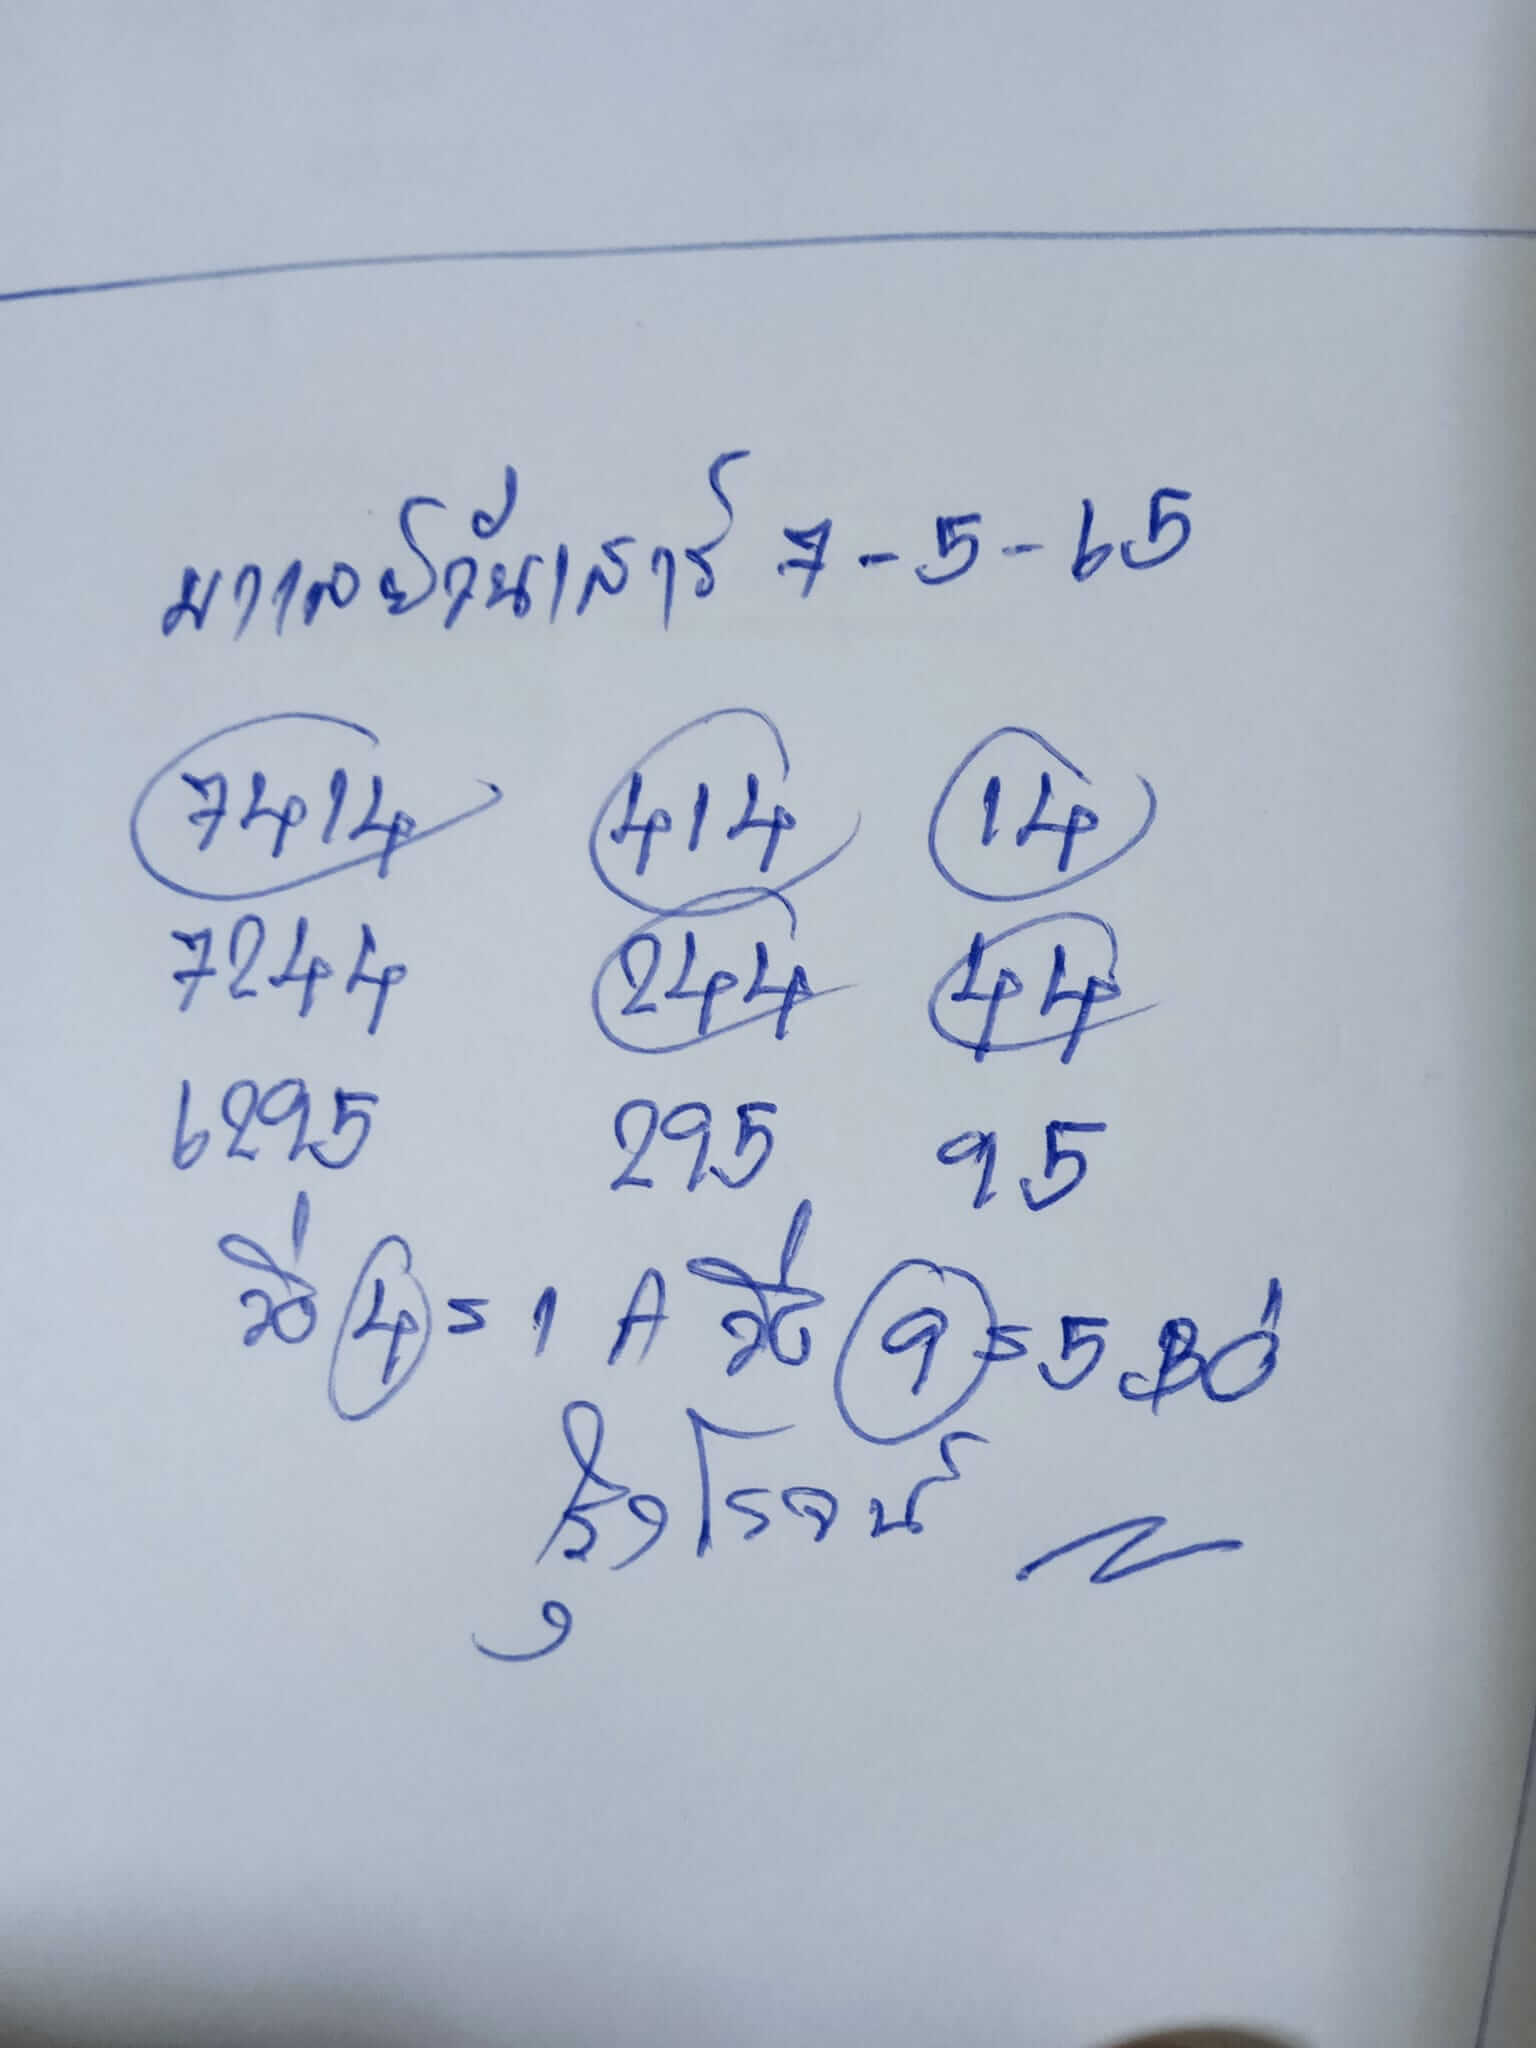 มาเลย์วันเสาร์ 7-5-65
7414 414 14
7244 244 44
6295 295 95
วิ่ง 4 = 1 A วิ่ง 9 = 5
รุ่งโรจน์